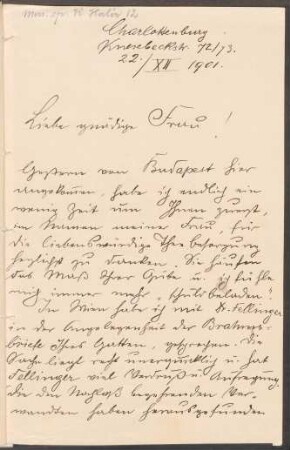 Charlottenburg
Knesebeckstr. 72/73.
22./XII 1901.
Liebe gnädige Frau!
Gestern von Budapest hier
angekommen, habe ich endlich ein
wenig Zeit um Ihnen zuerst,
im Namen meiner Frau, für
die liebenswürdige Theebesorgung
herzlichst zu danken. Sie häufen
das Maß Ihrer Güte u. ich fühle
mich immer mehr „schuldbeladen".
In Wien habe ich mit Dr. Fellinger
in der Angelegenheit der Brahms-
briefe Ihres Gatten, gesprochen. Die
Sache liegt recht unerquicklich u. hat
Fellinger viel Verdruß u. Aufregung
die den Nachlaß begehrenden Ver-
wandten haben herausgefunden